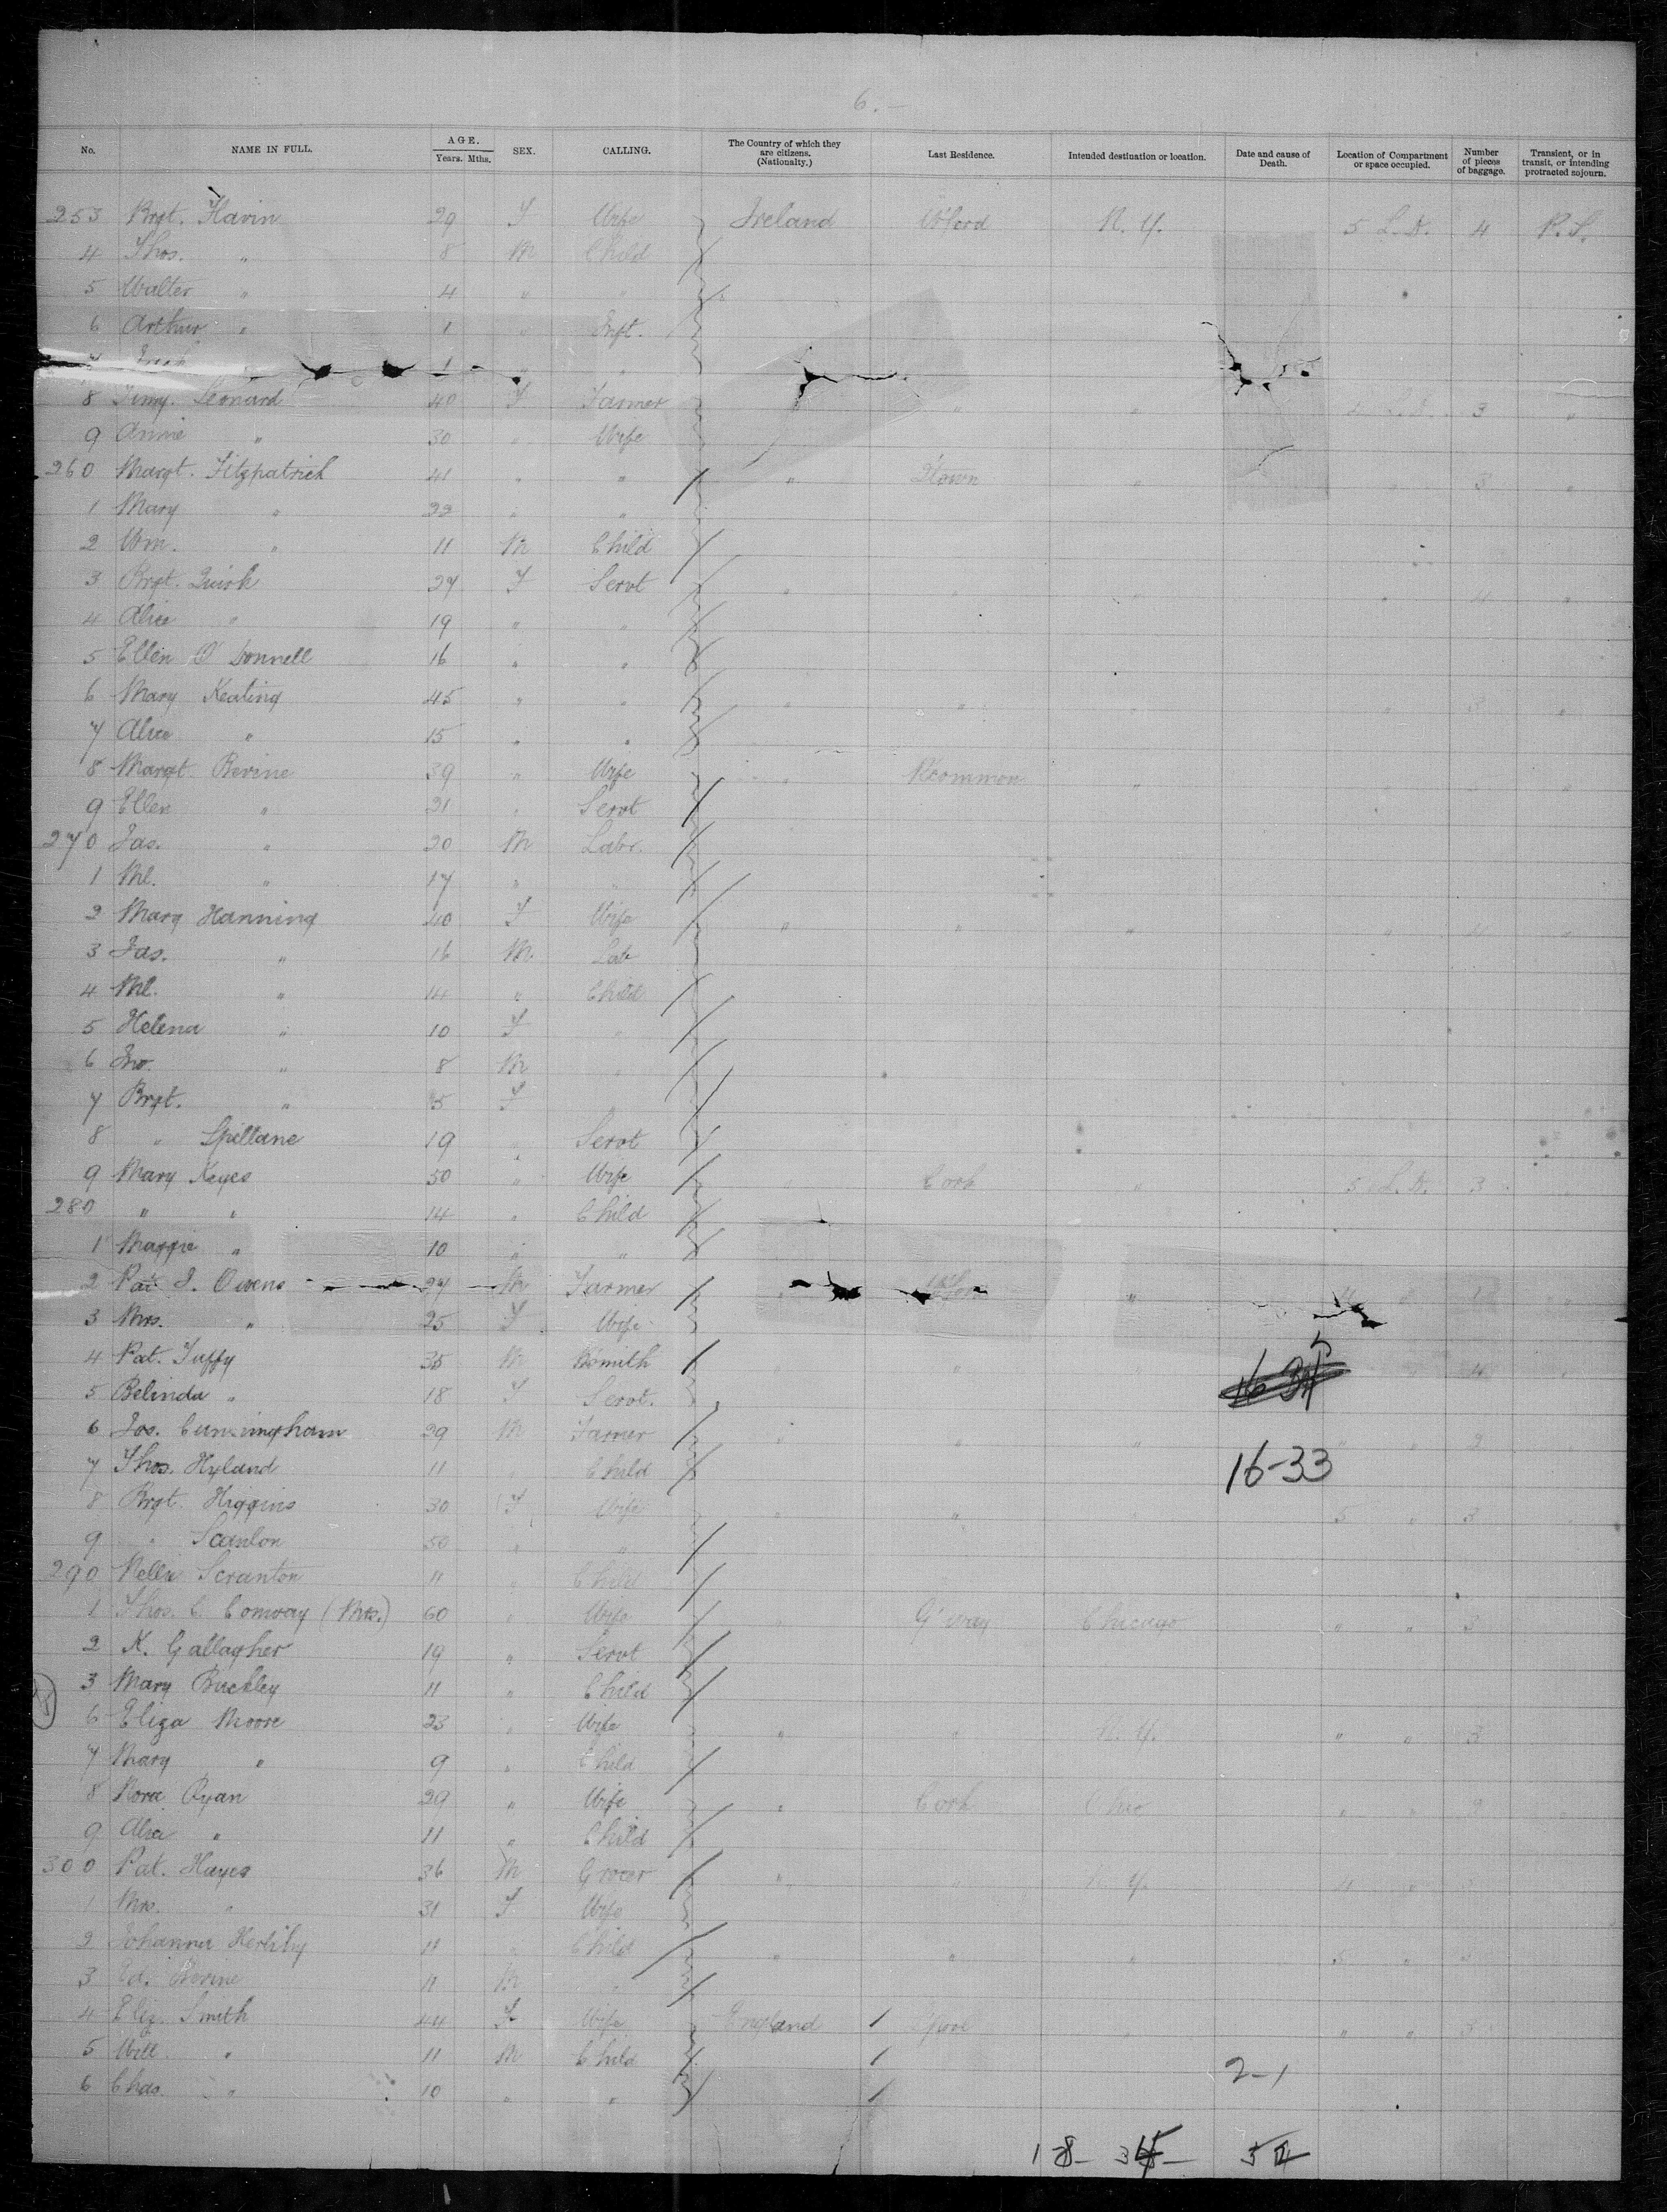 6.—
No. NAME IN FULL. AGE. Years. Mths. SEX. CALLING. The Country of which they are citizens. (Nationality.) Last Residence. Intended destination or location. Date and cause of Death. Location of Compartment or space occupied. Number of pieces of baggage. Transient, or in transit, or intending protracted sojourn.
253 Brgt. Flavin 29 F Wife Ireland W'ford N. Y. 5 L. D. 4 P. S.
4 Thos. " 8 M Child
5 Walter " 4 " "
6 Arthur " 1 " Inft.
7 1 "
8 Jimy. Leonard 40 F Farmer " " " 4 L. D. 3 "
9 Annie " 30 " Wife
260 Margt. Fitzpatrick 41 " " " Qtown " " 3 "
1 Mary " 22 " "
2 Wm. " 11 M Child
3 Brgt. Quirk 27 F Servt " " " " 4 "
4 Alice " 19 " "
5 Ellen O'Donnell 16 " "
6 Mary Keating 45 " " " " " " 3 "
7 Alice " 15 " "
8 Margt Bevine 39 " Wife " R'common " " "
9 Ellen " 21 " Servt
270 Jas. " 20 M Labr.
1 Ml. " 17 " "
2 Mary Hanning 40 F Wife " " " " 4 "
3 Jas. " 16 M Lab
4 Ml. " 14 " Child
5 Helena " 10 F "
6 Jno. " 8 M "
7 Brgt. " 5 F
8 " Spillane 19 " Servt
9 Mary Keyes 50 " Wife " Cork " 5 L. D. 3
280 " " 14 " Child
1 Maggie " 10 " "
2 Pat J. Owens 27 M Farmer " " 4 "
3 Mrs. " 25 F Wife
4 Pat. Tuffy 35 M B'smith " " " 4
5 Belinda " 18 F Servt.
6 Jos. Cunningham 39 M Farmer " " " " " 2
7 Thos. Hyland 11 " Child 16-33
8 Brgt. Higgins 30 F Wife " " " 5 " 3
9 " Scanlon 50 " "
290 Nellie Scranton 11 " Child
1 Thos. C. Conway (Mrs.) 60 " Wife " G'way Chicago " " 3
2 K. Gallagher 19 " Servt
3 Mary Buckley 11 " Child
6 Eliza Moore 23 " Wife " " N. Y. " " 3
7 Mary " 9 " Child
8 Nora Ryan 29 " Wife " Cork Ohio " " 2
9 Alice " 11 " Child
300 Pat. Hayes 36 M Grocer " " N. Y. 4 "
1 Mrs. " 31 F Wife
2 Johanna Herlihy 11 " Child " " " 5 "
3 Ed. Bevine 11 M "
4 Eliz. Smith 44 F Wife England L'pool " " " 3
5 Will " 11 M Child 2-1
6 Chas. " 10 " "